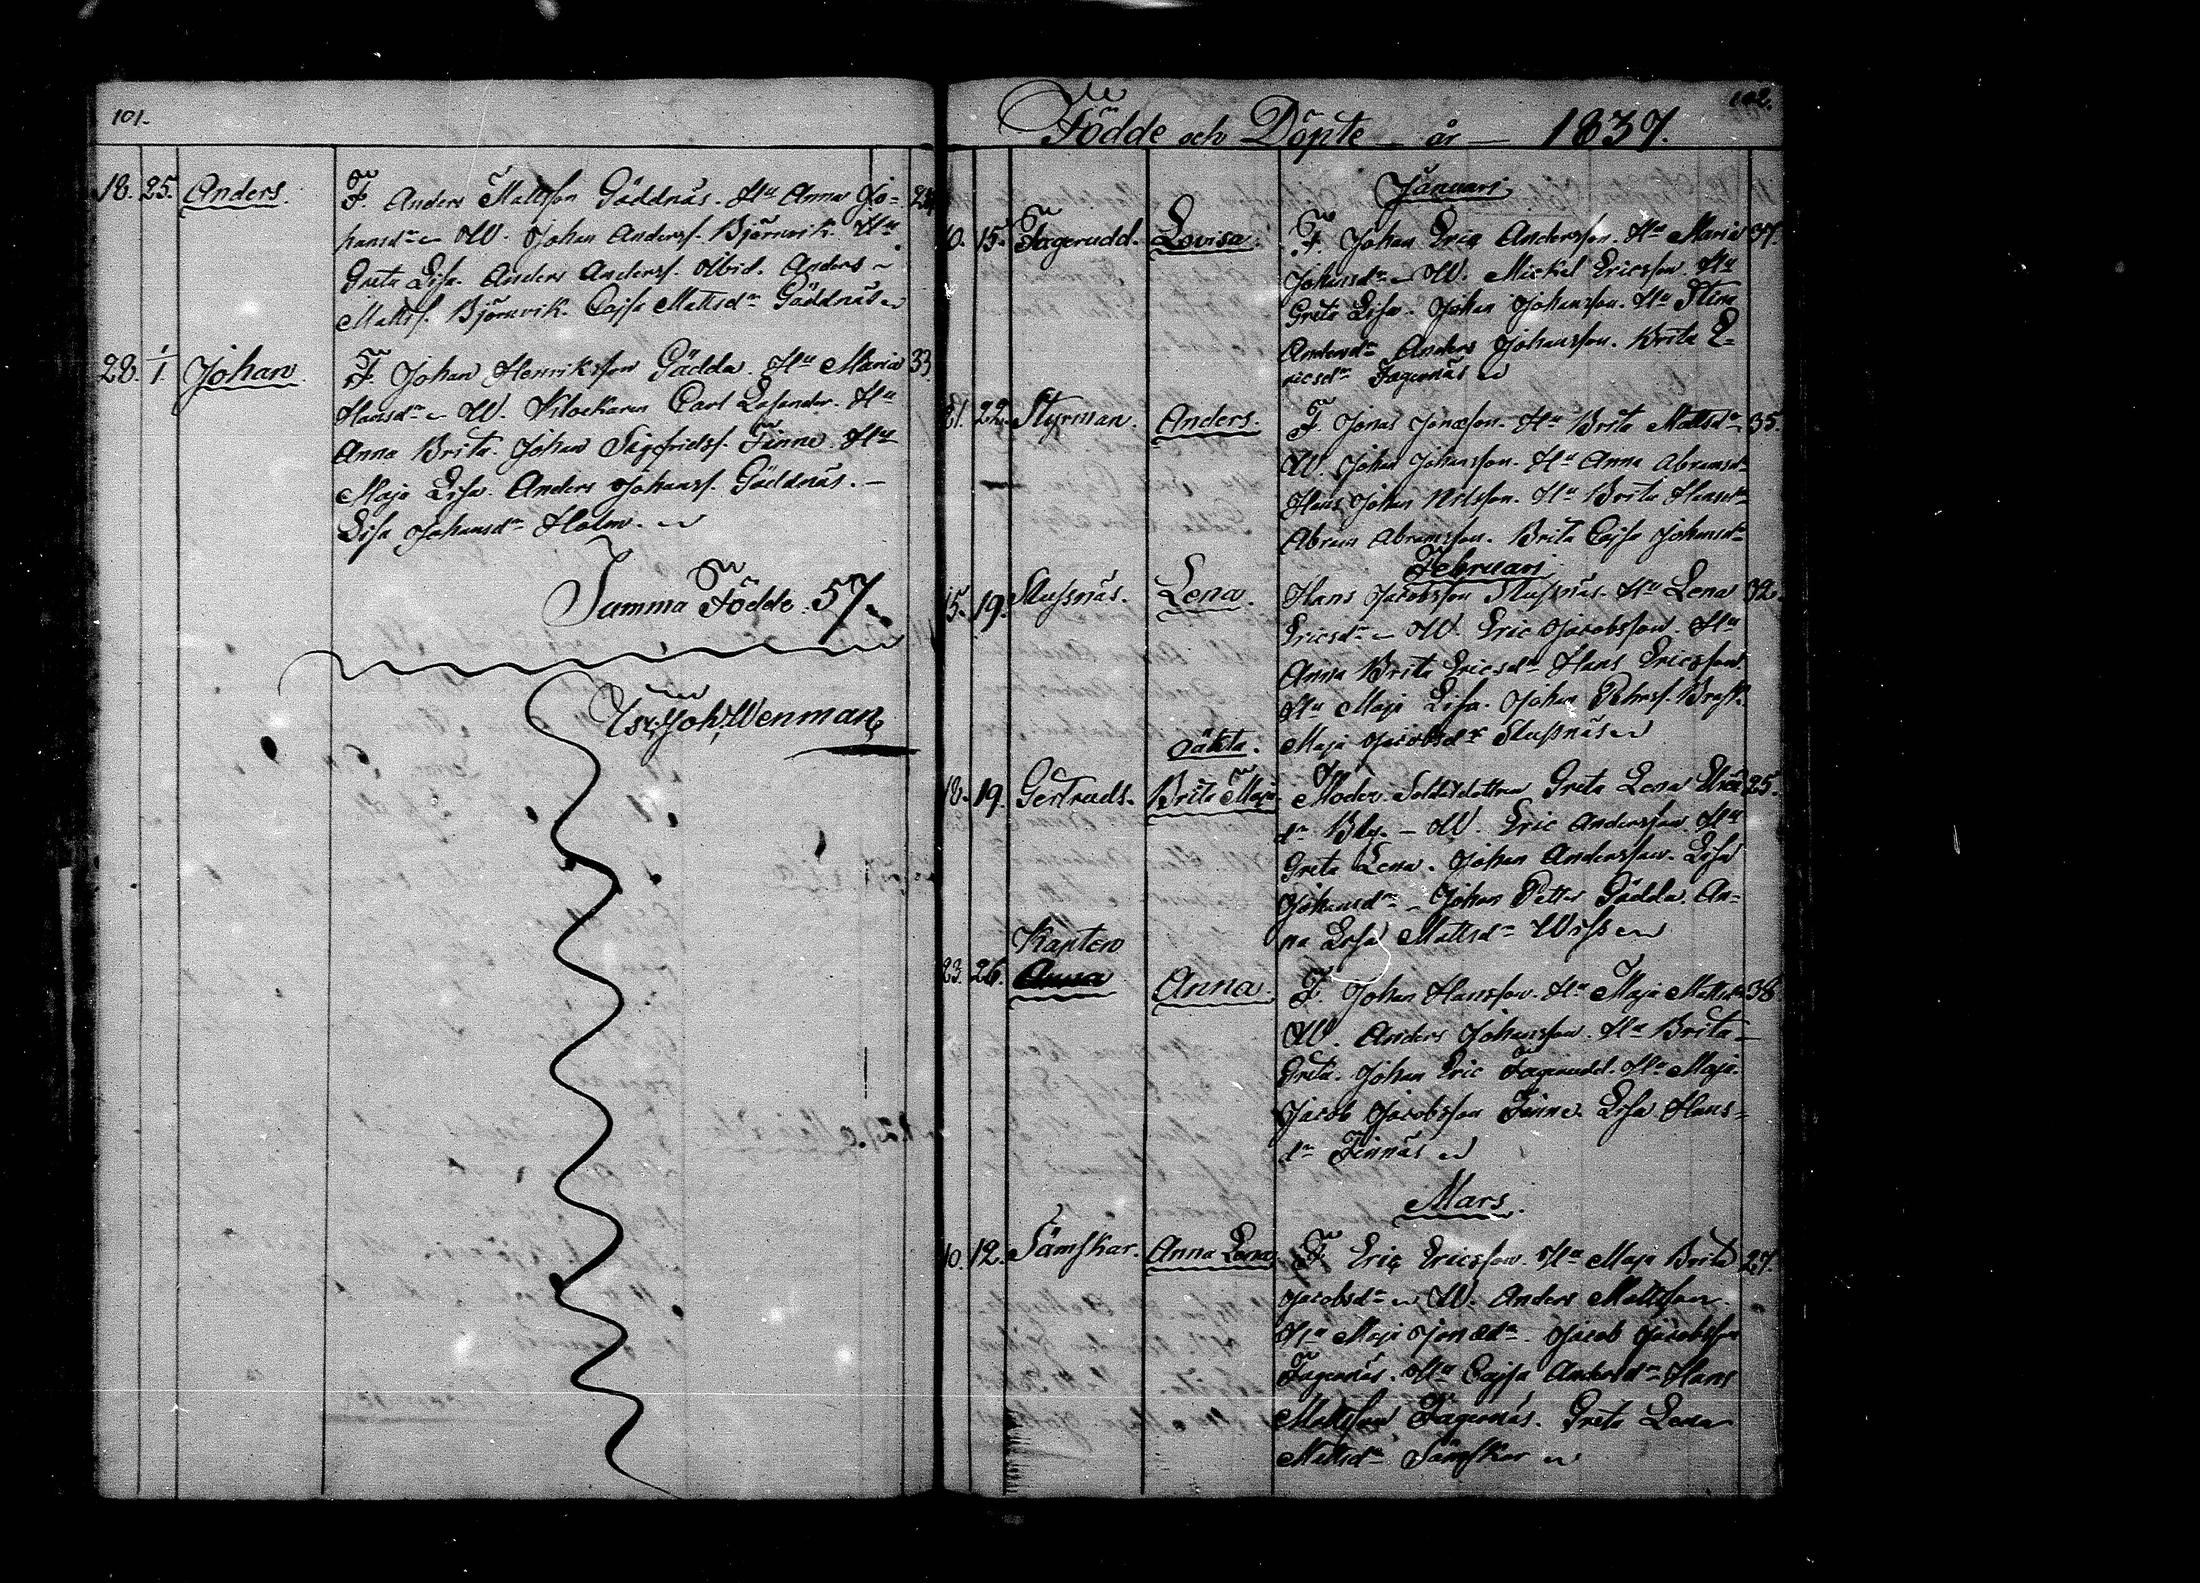 101.
18. 25. Anders. F. Anders Mattsson Gäddnäs. Hu Anna Jo=
hansdr W. Johan Anderss. Björnvik. Hu
Greta Lisa. Anders Anderss. Ibid. Anders
Mattss. Björnvik. Cajsa Mattsdr Gäddnäs
28. 1/1. Johan. F. Johan Henriksson Gädda. Hu Maria 33.
Hansdr W. Klockaren Carl Hu
Anna Brita. Johan Sigfridss. Finne. Hu
Maja Lisa. Anders Johanss. Gäddnäs.
Lisa Johansdr Holm.
Summa Födde. 57.
Joh. Wenman
102.
Födde och Döpte år 1837.
Januari
10. 15. Fagerudd. Lovisa. F. Johan Eric Andersson. Hu Maria 37.
Johansdr W. Mickel Ericsson. Hu
Greta Lisa. Johan Johansson. Hu Stina
Andersdr Anders Johansson. Brita E=
ricsdr Fagernäs
21. 22. Styrman. Anders. F. Jonas Jonasson. Hu Brita Mattsdr 35.
W. Johan Johansson. Hu Anna Abramsdr
Hans Johan Nilsson. Hu Brita Hansdr
Abram Abramsson. Brita Cajsa Johansdr
Februari
15. 19. Slussnäs. Lena. Hans Jacobsson Slussnäs. Hu Lena 32.
Ericsdr W. Eric Jacobsson. Hu
Anna Brita Ericsdr Hans Ericsson
Hu Maja Lisa. Johan Pehrss.
Maja Jacobsdr Slussnäs
oäkta.
18. 19. Gertruds. Brita Maja Moder. Soldatdottren Greta Lena 25.
dr Bly. W. Eric Andersson. Hu
Greta Lena. Johan Andersson. Lisa
Johansdr Johan Petter Gädda. An=
na Lisa Mattsdr
Kapten
23. 26. Anna Anna. F. Johan Hansson. Hu Maja Mattsdr 38.
W. Anders Johansson. Hu Brita
Greta. Johan Eric Fagerudd. Hu Maja.
Jacob Jacobsson Finne. Lisa Hans=
dr Finnäs
Mars.
10. 12. Sämskar. Anna Lena. F. Eric Ericsson. Hu Maja Brita 27.
Jacobsdr W. Anders Mattsson.
Hu Maja Jonædr. Jacob Jacobsson
Fagernäs. Hu Cajsa Andersdr Hans
Mattsson Fagernäs. Greta Lena
Mattsdr Sämskar